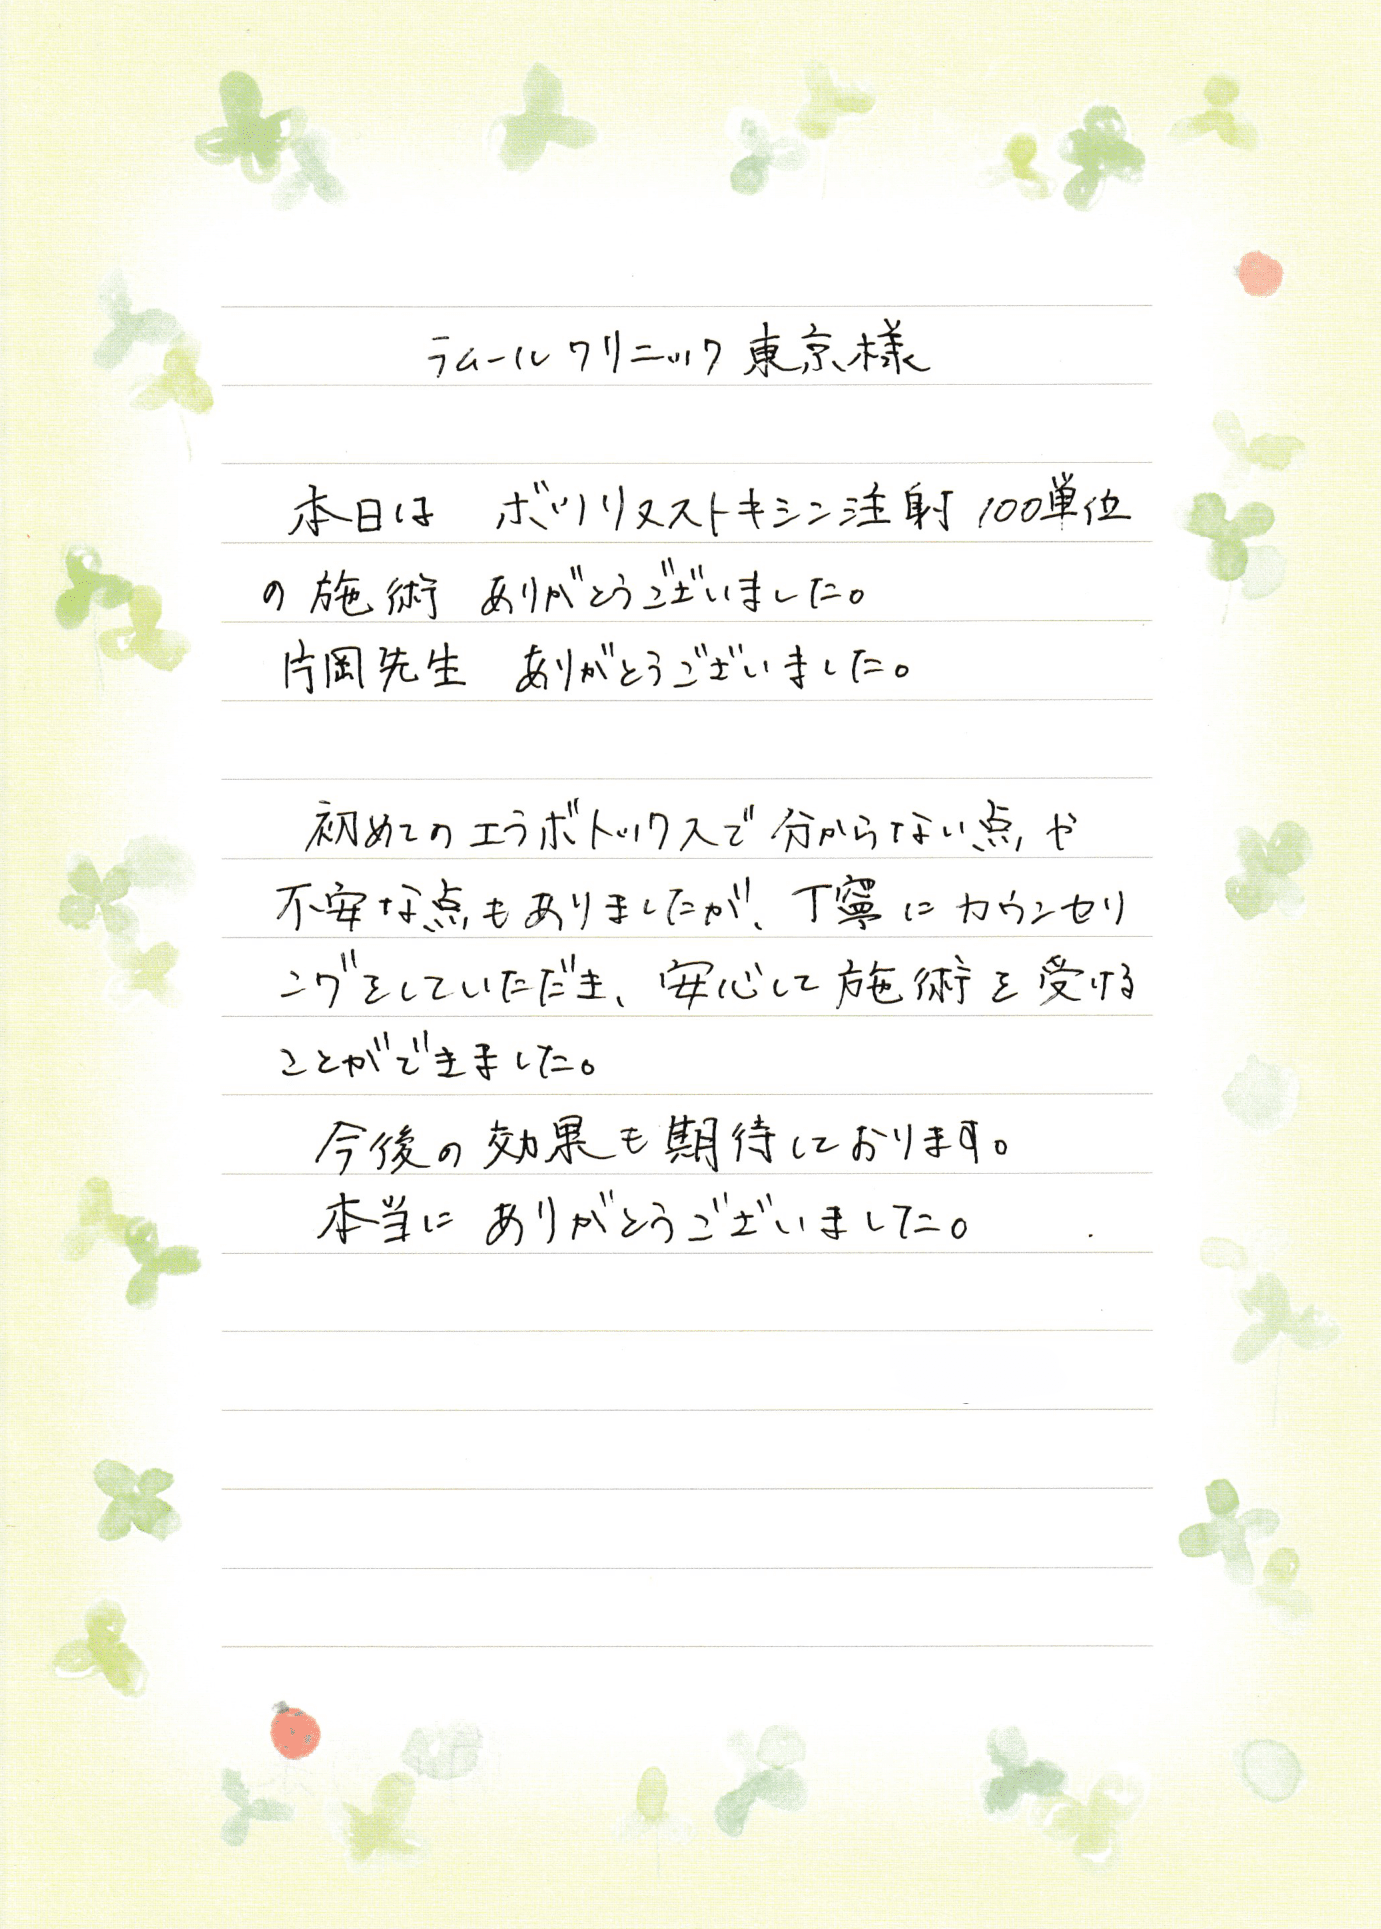 ラムールクリニック東京様
本日は ボツリヌストキシン注射 100単位
の施術 ありがとうございました。
片岡先生 ありがとうございました。
初めてのエラボトックスで分からない点や
不安な点もありましたが、丁寧にカウンセリ
ングをしていただき、安心して施術を受ける
ことができました。
今後の効果も期待しております。
本当に ありがとうございました。